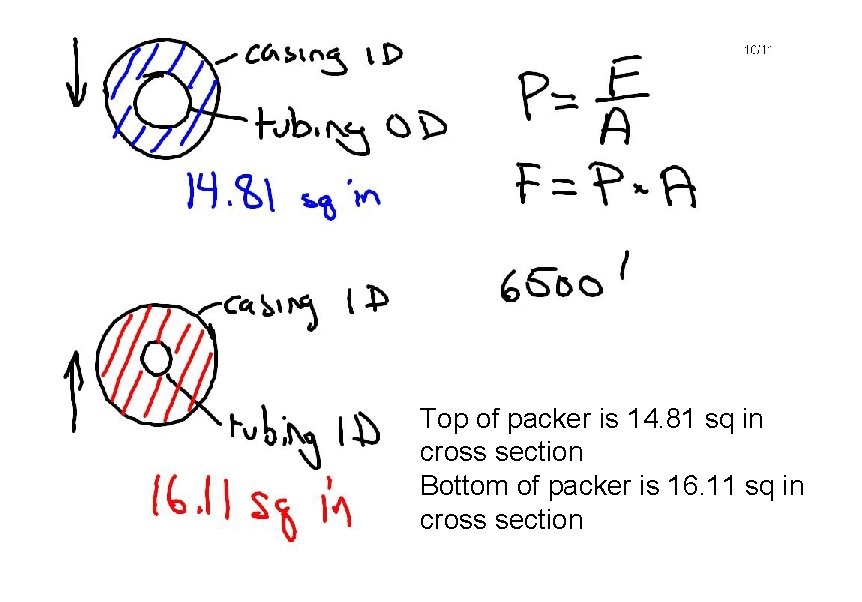 10/11
casing ID
tubing OD
14.81 sq in
P = F/A
F = P × A
6500'
casing ID
tubing ID
16.11 sq in
Top of packer is 14.81 sq in
cross section
Bottom of packer is 16.11 sq in
cross section